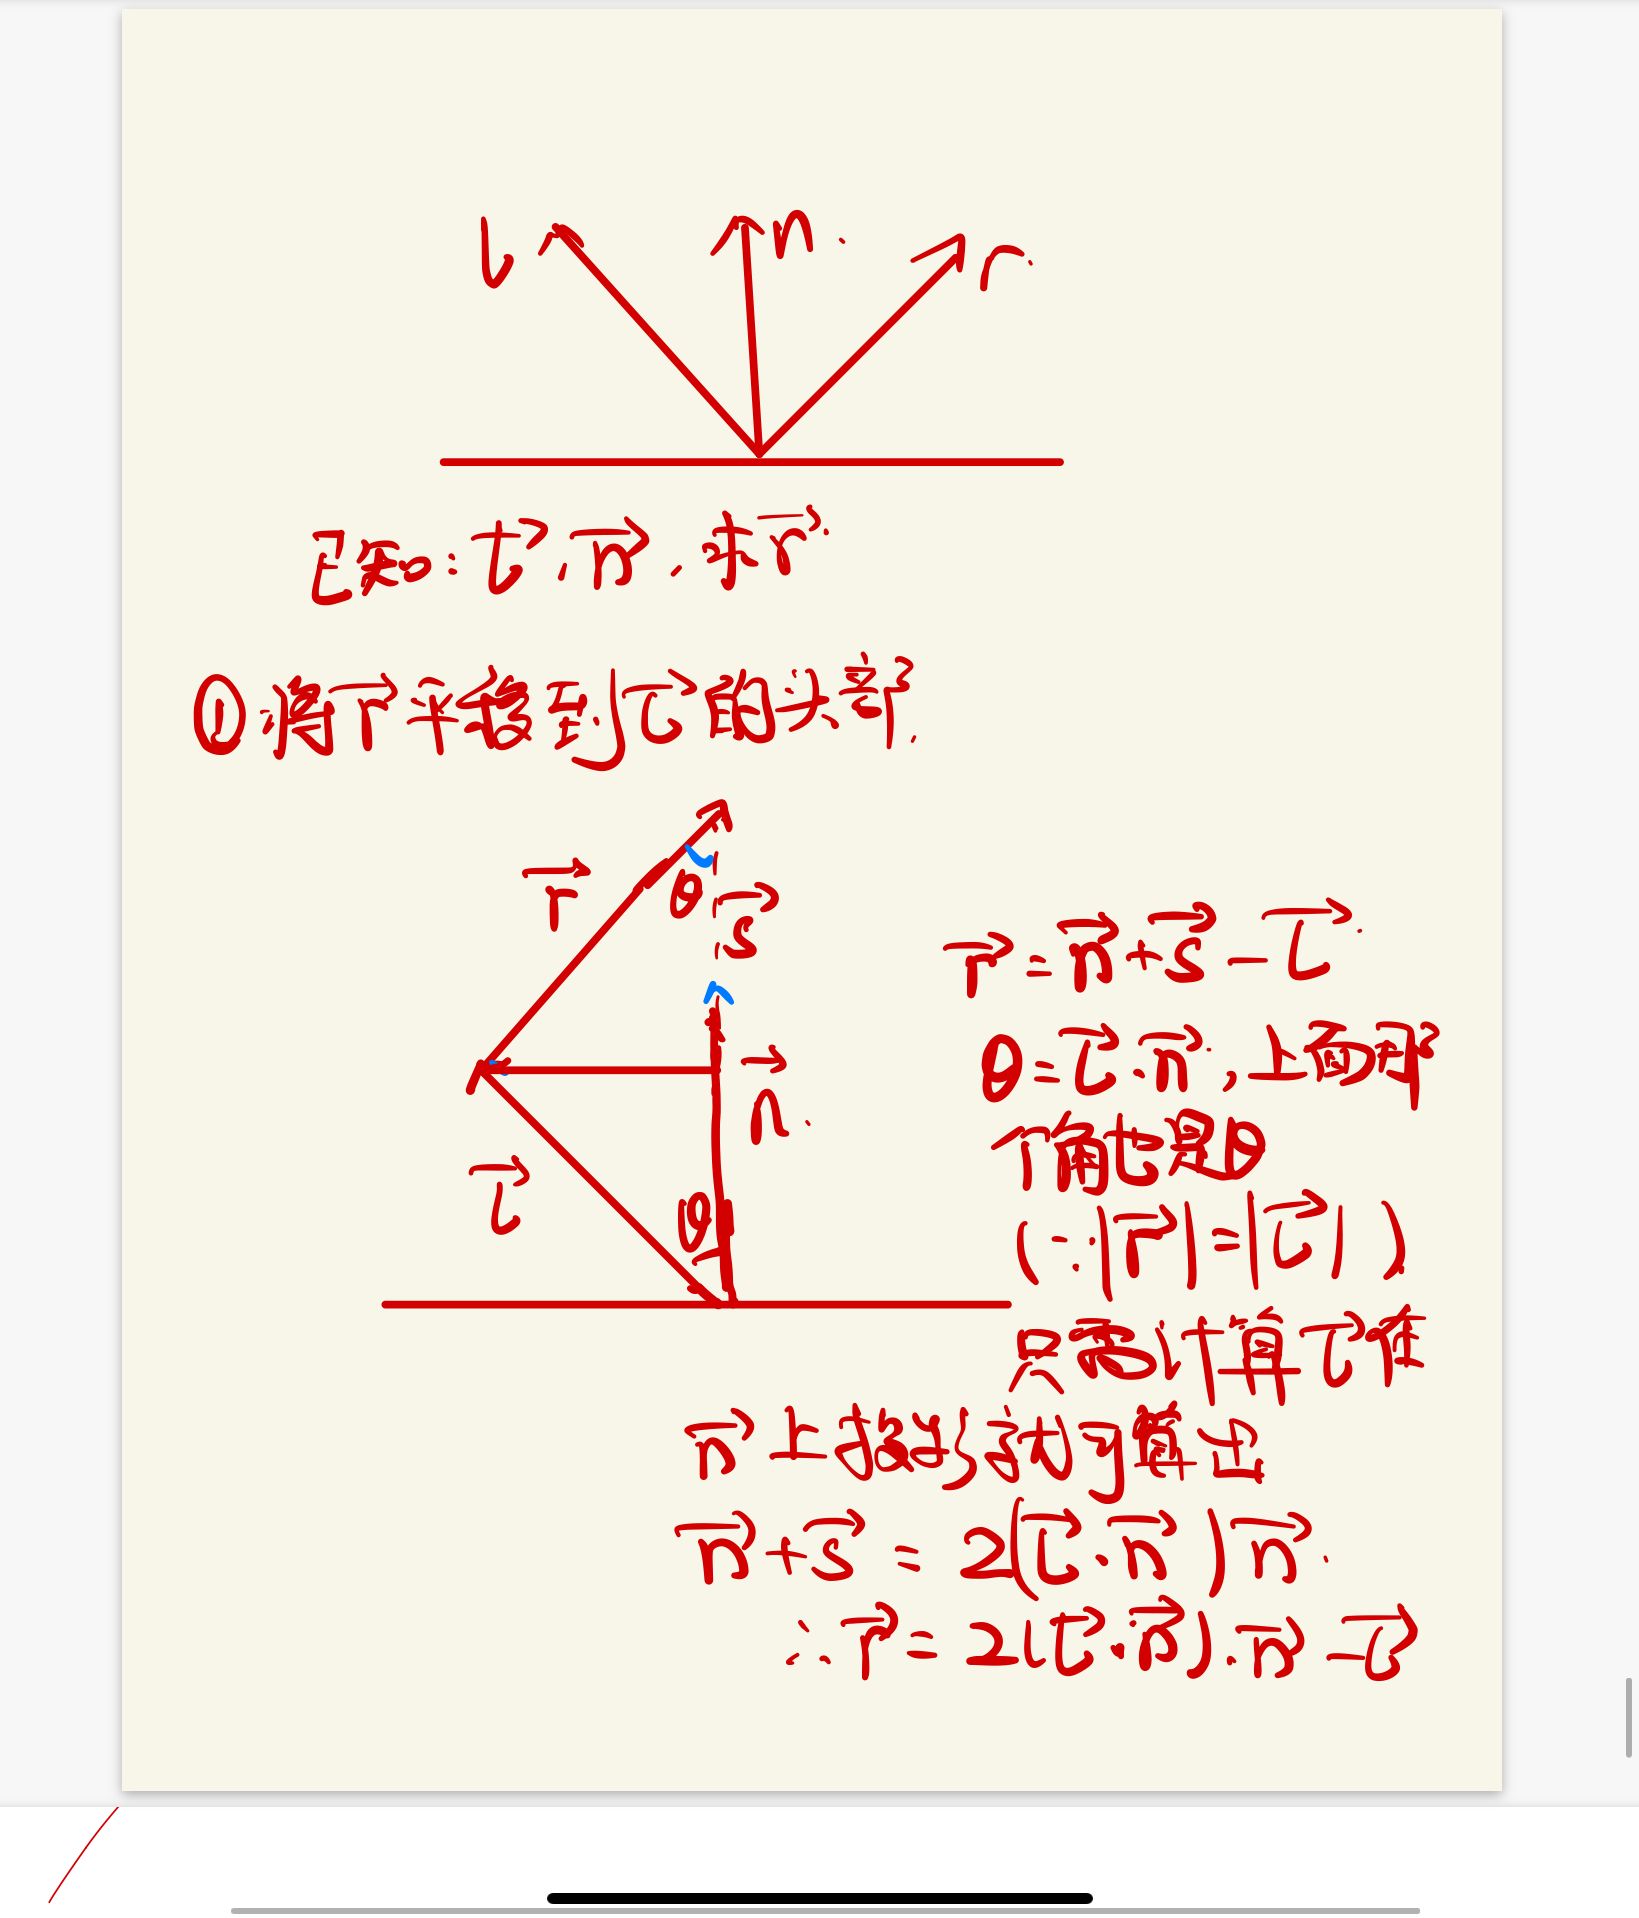 l n. r.
已知: l⃗, n⃗, 求r⃗.
① 将r⃗平移到l⃗的头部.
r⃗ θ s⃗
n⃗.
l⃗ θ
r⃗ = n⃗ + s⃗ - l⃗.
θ = l⃗·n⃗, 上面那
个角也是θ
(∵|r⃗| = |l⃗|)
只需计算l⃗在
n⃗上投影就可算出
n⃗ + s⃗ = 2(l⃗·n⃗)n⃗.
∴ r⃗ = 2(l⃗·n⃗)·n⃗ - l⃗